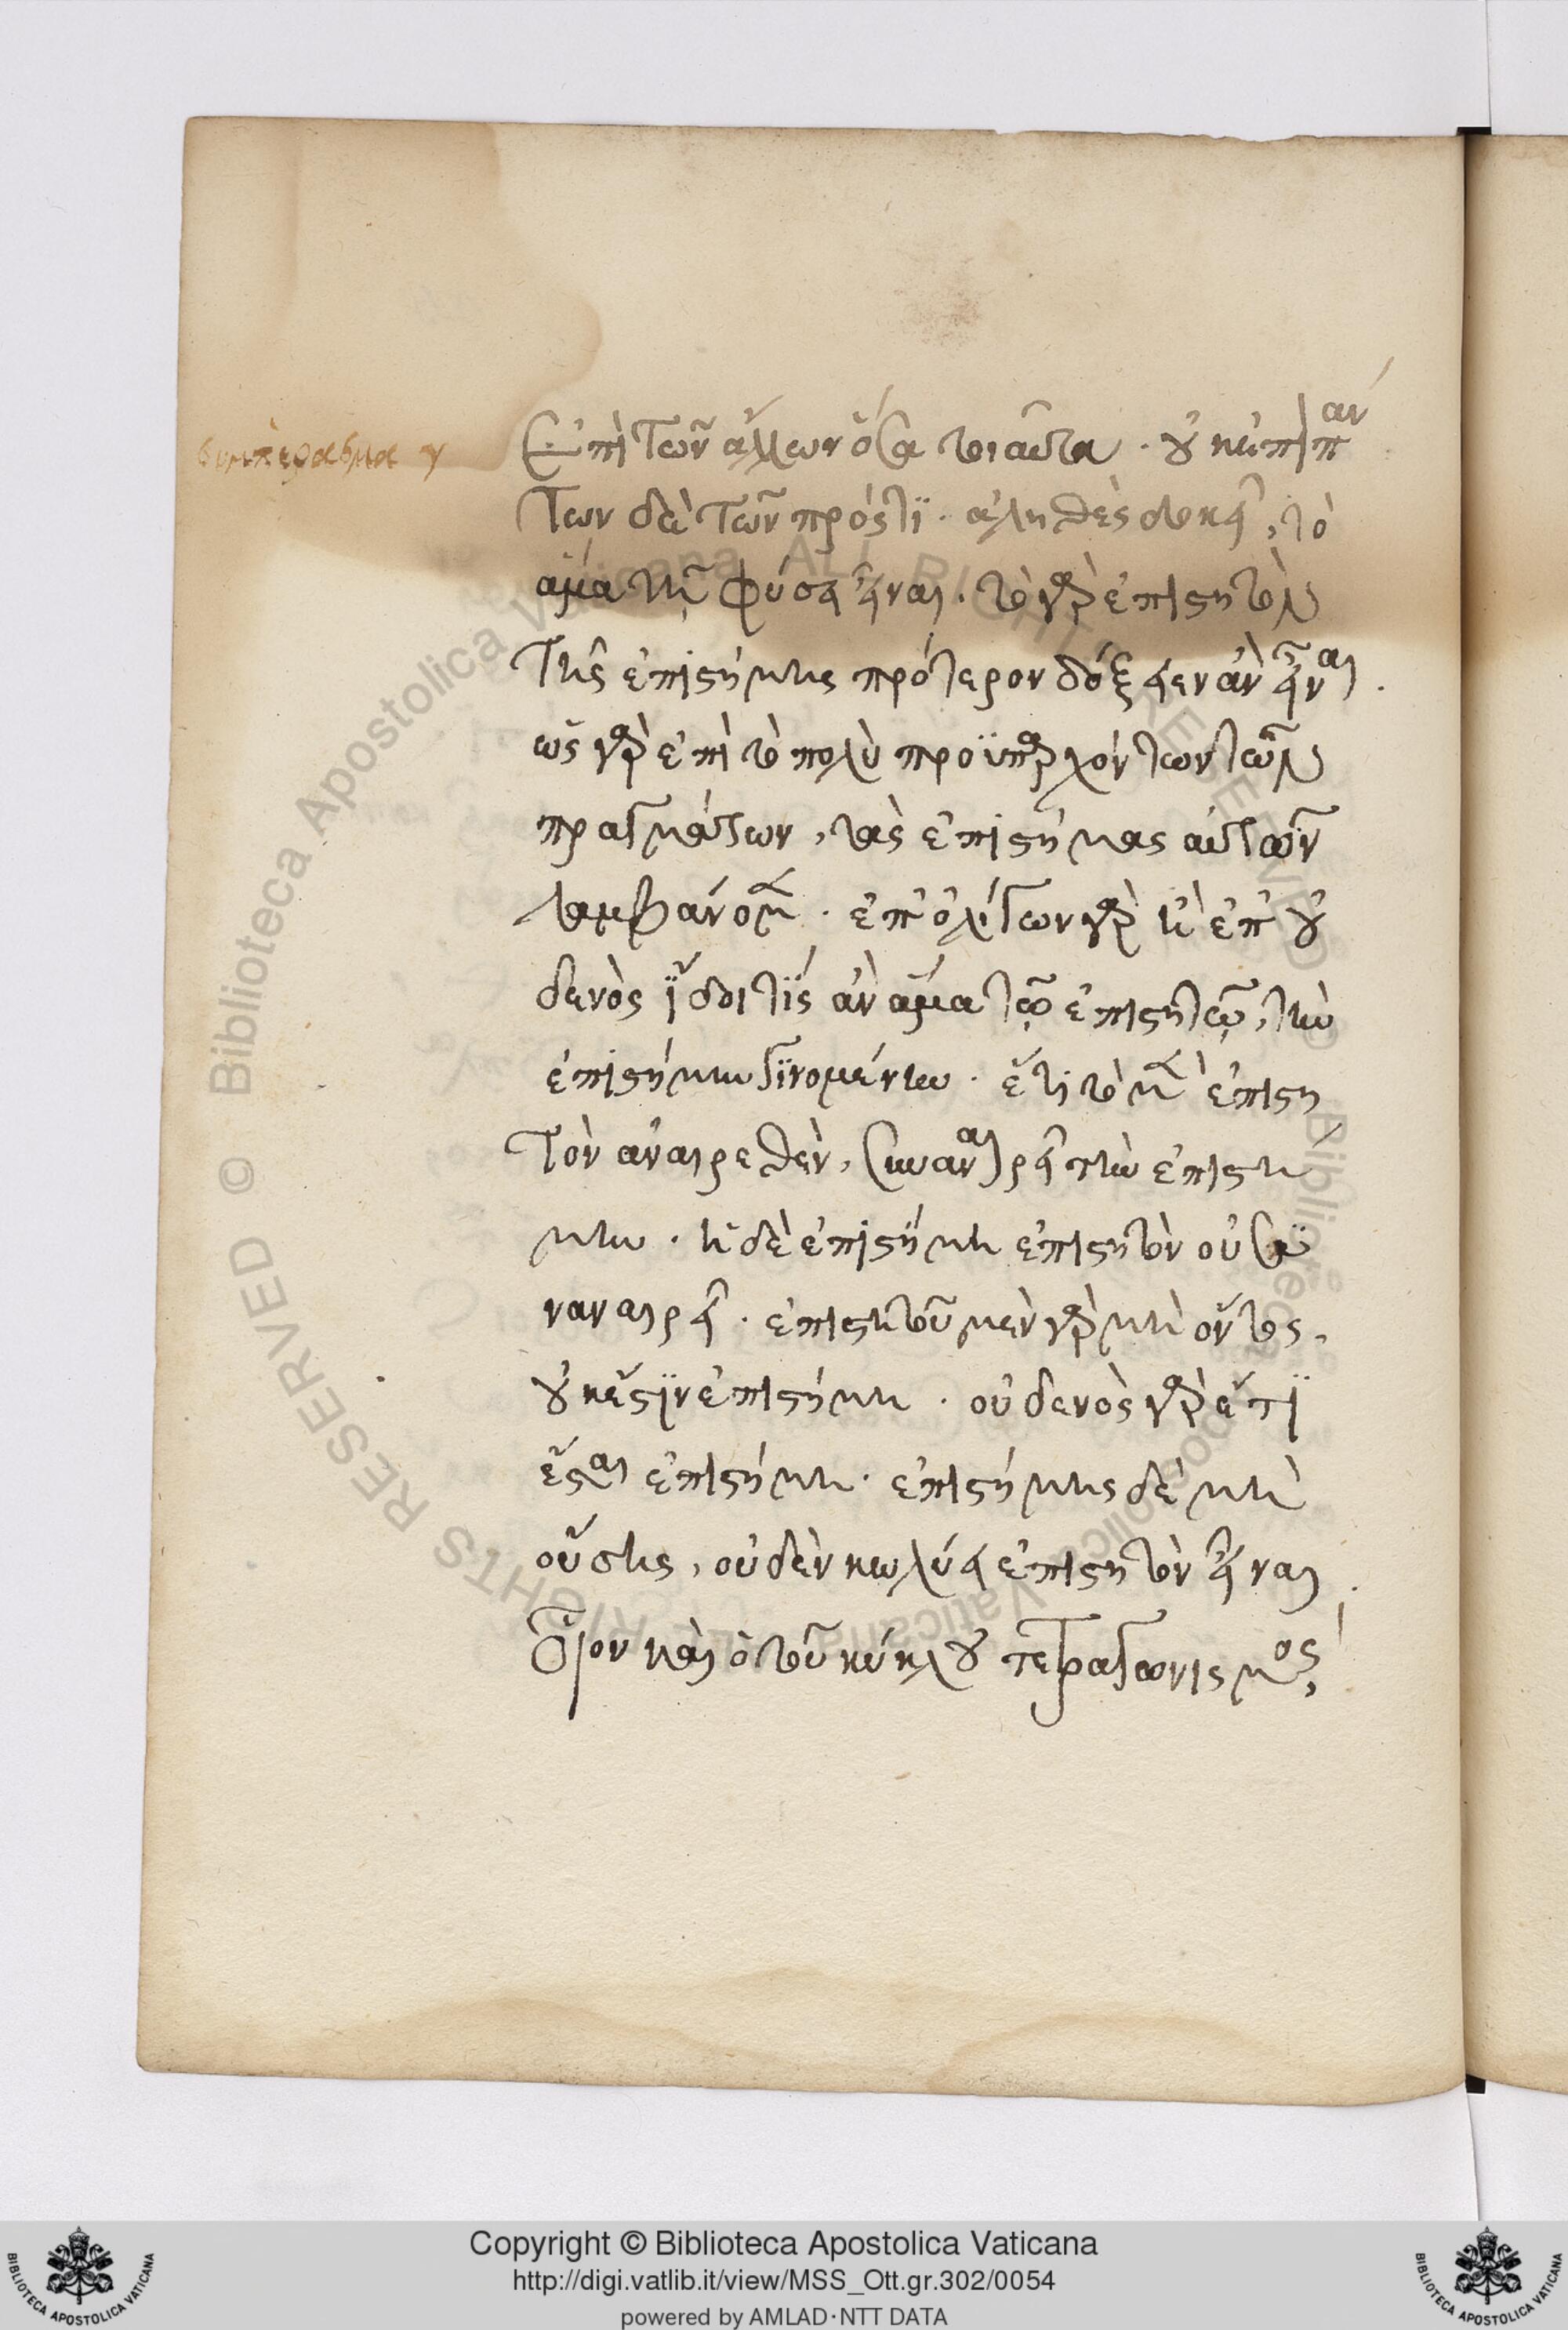 συμπέρασμα γ
ἐπὶ τῶν ἄλλων ὅσα τοιαῦτα. οὐκ ἐπὶ πάν
των δὲ τῶν πρός τϊ. ἀληθὲς δοκεῖ, τὸ
ἅμα τῇ φύσει εἶναι. τὸ γὰρ ἐπιστητὸν
τῆς ἐπιστήμης πρότερον δόξειεν ἂν εἶναι.
ὡς γὰρ ἐπὶ τὸ πολὺ προϋπαρχόντων τῶν
πραγμάτων, τὰς ἐπιστήμας αὐτῶν
λαμβάνομεν. ἐπ' ὀλίγων γὰρ ἢ ἐπ' οὐ
δενὸς ἴδοι τίς ἂν ἅμα τῷ ἐπιστητῷ, τὴν
ἐπιστήμην γϊνομένην. ἔτι τὸ μὲν ἐπιστη
τὸν ἀναιρεθὲν, συναναιρεῖ τὴν ἐπιστή
μην. ἡ δὲ ἐπιστήμη ἐπιστητὸν οὐ συ
ναναιρεῖ. ἐπιστητοῦ μὲν γὰρ μὴ ὄντος,
οὐκ ἔστϊν ἐπιστήμη. οὐδενὸς γὰρ ἔτϊ
ἔσται ἐπιστήμη. ἐπιστήμης δὲ μὴ
οὔσης, οὐδὲν κωλύει ἐπιστητὸν εἶναι.
Οἷον καὶ ὁ τοῦ κύκλου τετραγωνισμός,
Copyright © Biblioteca Apostolica Vaticana
http://digi.vatlib.it/view/MSS_Ott.gr.302/0054
powered by AMLAD·NTT DATA
BIBLIOTECA APOSTOLICA VATICANA
BIBLIOTECA APOSTOLICA VATICANA
Biblioteca Apostolica Vaticana ALL RIGHTS RESERVED © Biblioteca Apostolica Vaticana ALL RIGHTS RESERVED ©